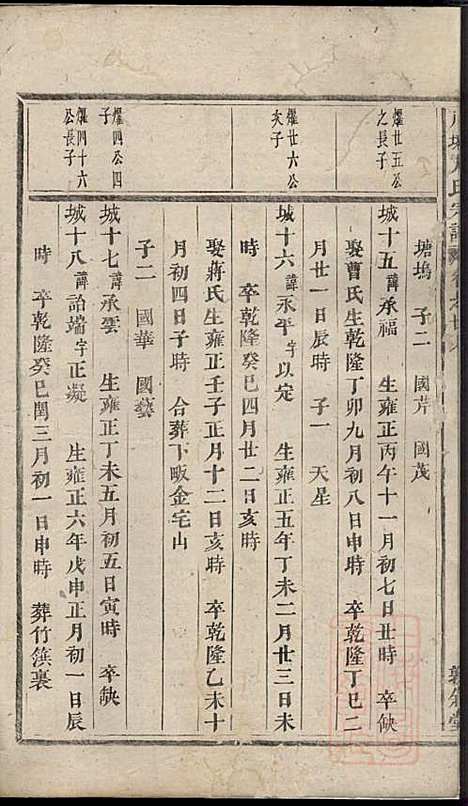 塘塢 子二 國芹 國茂
燿廿五公之長子
城十五諱承福 生雍正丙午十一月初七日丑時 卒缺
娶曹氏生乾隆丁卯九月初八日申時 卒乾隆丁巳二
月廿一日辰時 子一 天星
燿廿六公次子
城十六諱承平字以定 生雍正五年丁未二月廿三日未
時 卒乾隆癸巳四月廿二日亥時
娶蔣氏生雍正壬子正月十二日亥時 卒乾隆乙未十
月初四日子時 合葬下畈金宅山
子二 國華 國藝
燿四公四子
城十七諱承雲 生雍正丁未五月初五日寅時 卒缺
燿四十六公長子
城十八諱詒端字正凝 生雍正六年戊申正月初一日辰
時 卒乾隆癸巳閏三月初一日申時 葬竹簱裏